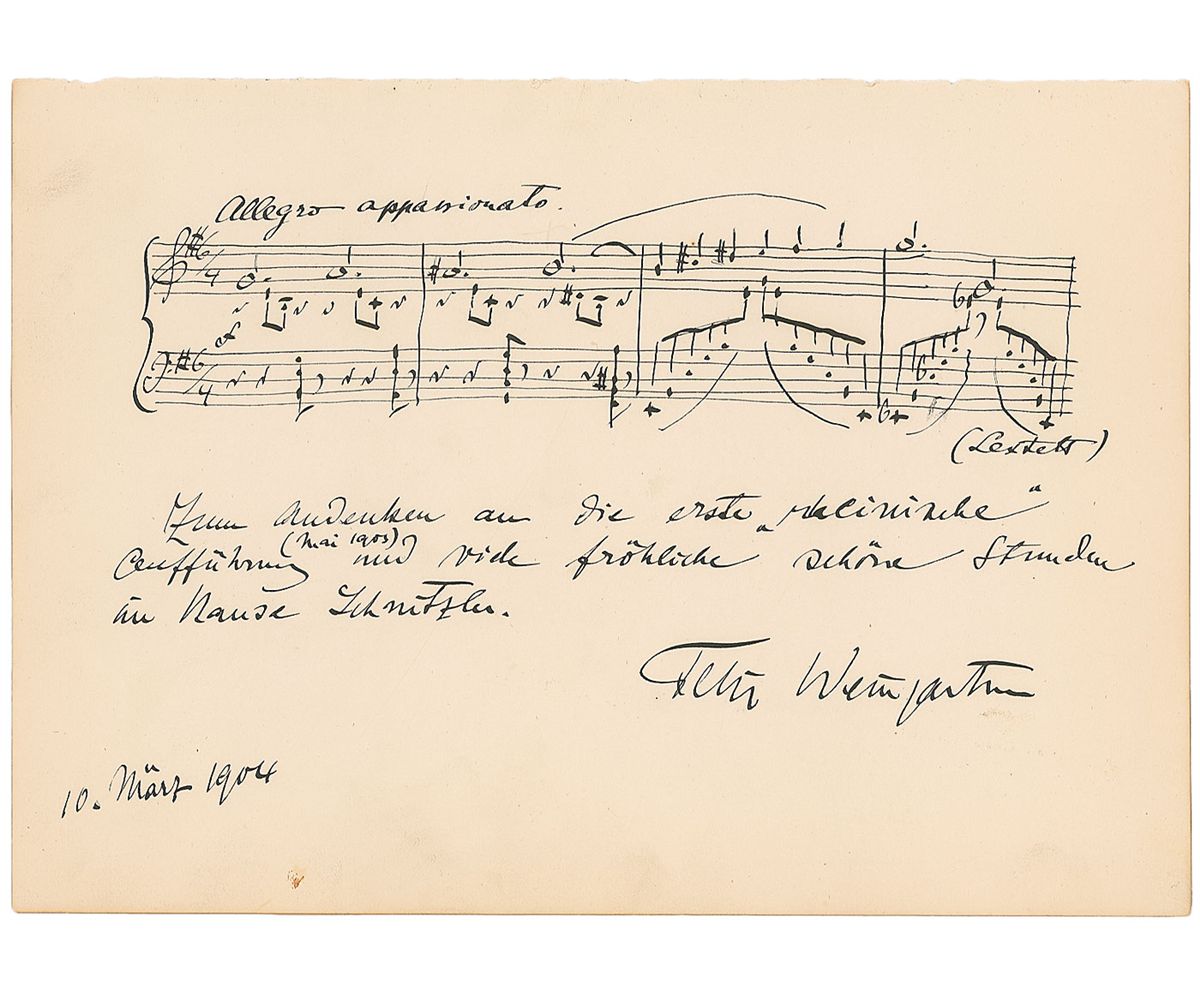 Allegro appassionato.
(Sextett)
Zum Andenken an die erste „rheinische“
(Mai 1903)
Aufführung und viele fröhliche schöne Stunden
im Hause Schnitzler.
Felix Weingartner
10. März 1904